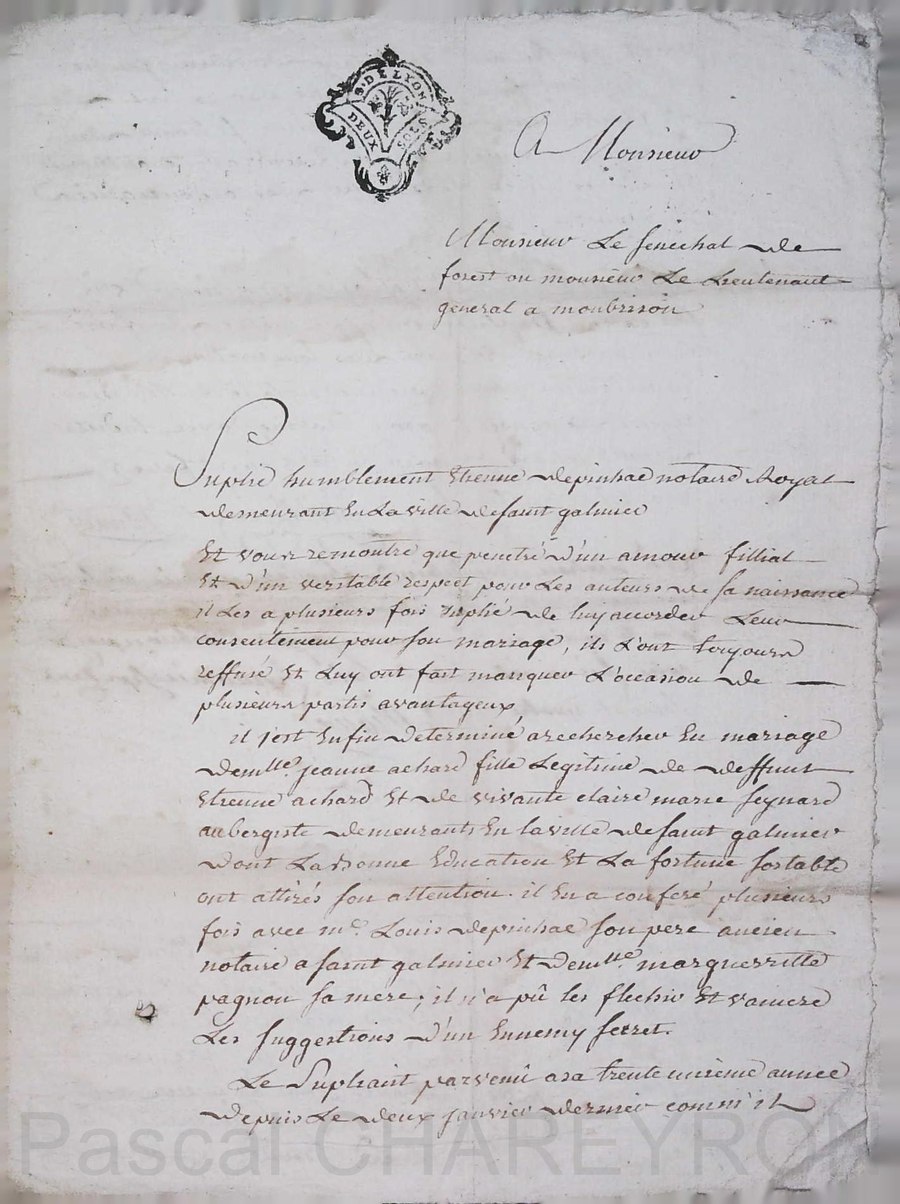 G. DE LYON
DEUX SOLS
A Monsieur
Monsieur Le senechal de
forest ou monsieur Le Lieutenant
general a montbrison
Suplie humblement Etienne depinhac notaire Royal
demeurant En La ville de saint galmier
Et vous remontre que penetré d'un amour fillial
Et d'un veritable respect pour Les auteurs de sa naissance
il Les a plusieurs fois suplié de luy accorder Leur
consentement pour son mariage, ils L'ont toujours
reffusé Et Luy ont fait manquer L'occasion de
plusieurs partis avantageux
il s'est Enfin determiné a rechercher En mariage
demlle. jeanne achard fille Legitime de deffunt
Etienne achard Et de vivante claire marie seynard
aubergiste demeurants En la ville de saint galmier
dont La bonne Education Et La fortune sortable
ont attirés son attention. il En a conferé plusieurs
fois avec me. Louis depinhac son pere ancien
notaire a saint galmier Et demlle. marguerritte
pagnon sa mere; il n'a pû les flechir Et vaincre
Les suggestions d'un Ennemy secret.
Le Supliant parvenû a sa trente unieme année
depuis Le deux janvier dernier comm'il
Pascal CHAREYRON